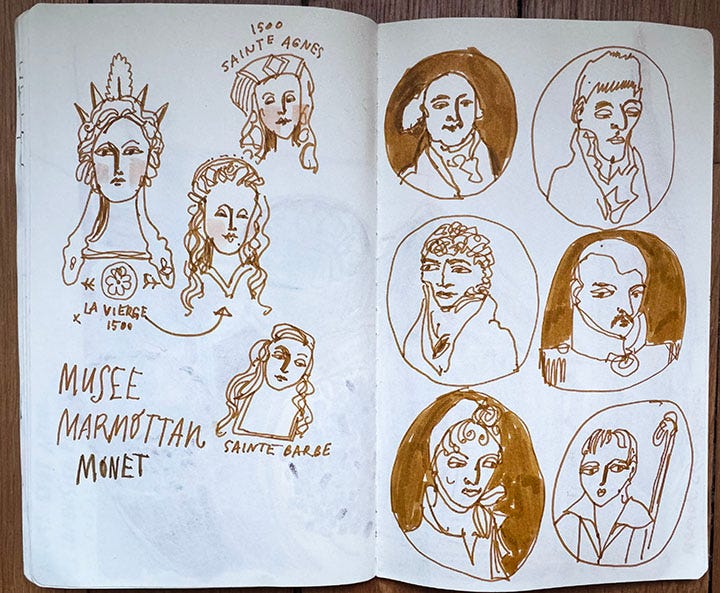 1500
SAINTE AGNES
x LA VIERGE
1500
SAINTE BARBE
MUSEE
MARMOTTAN
MONET